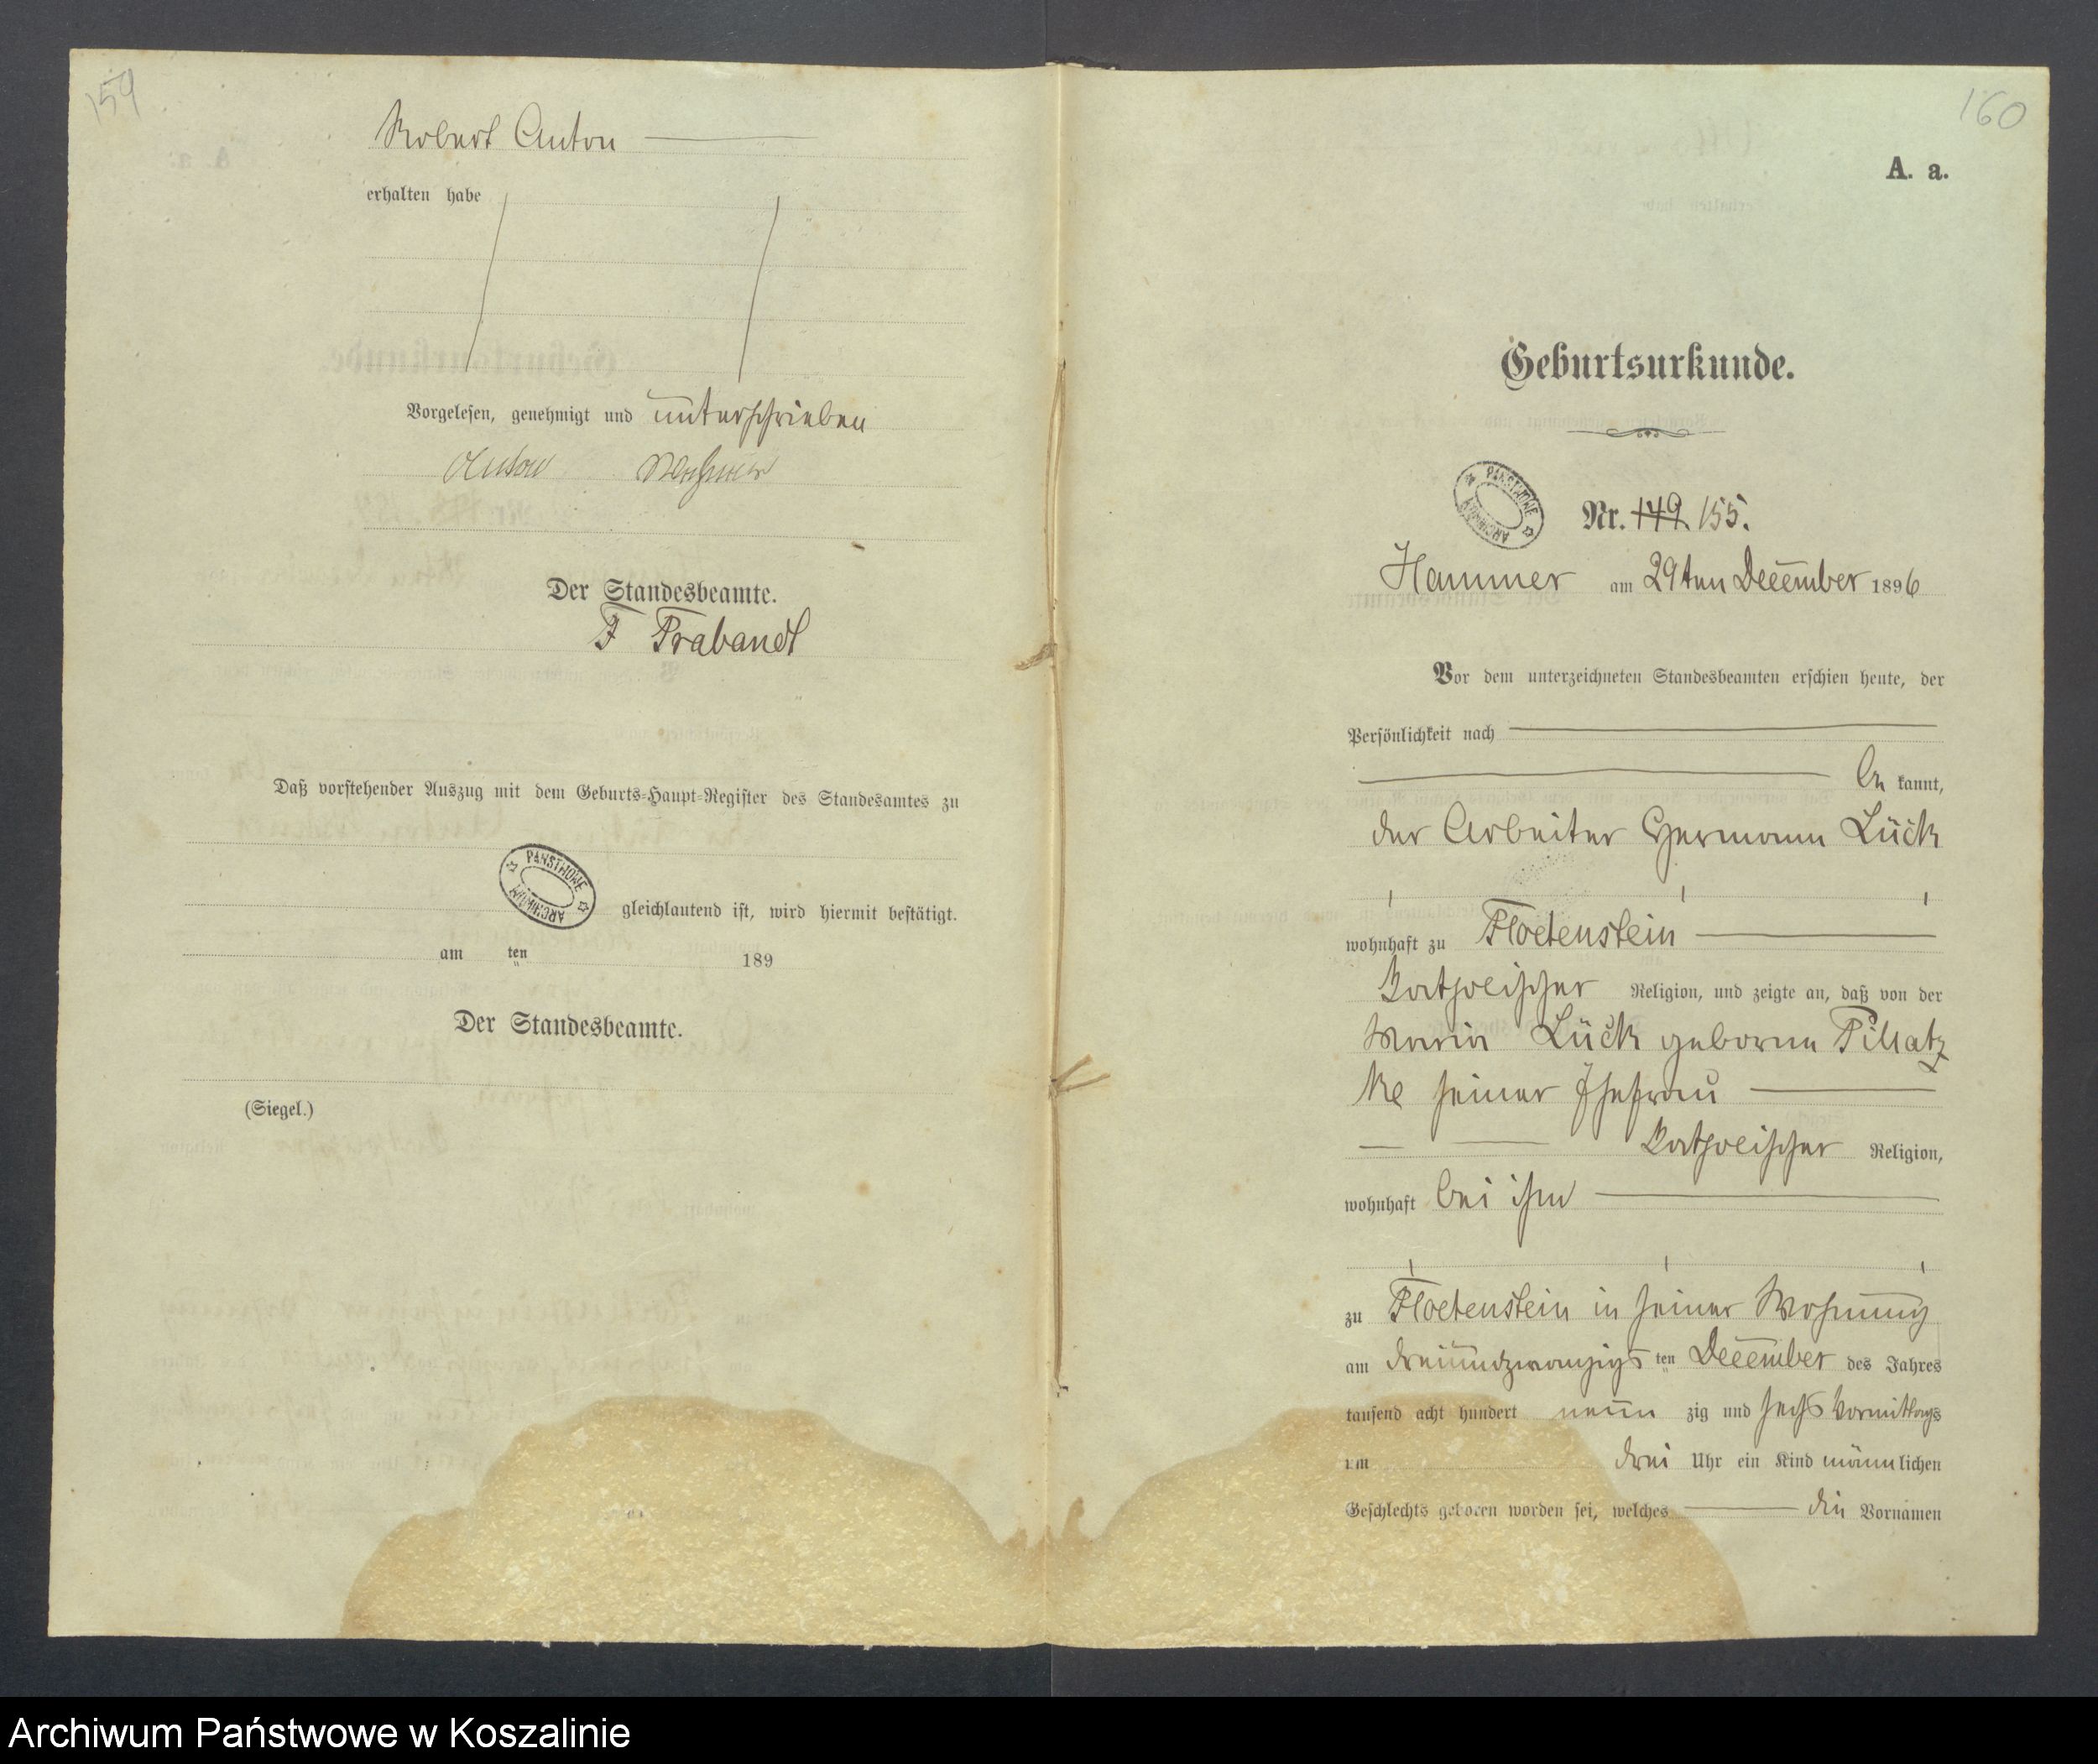 159
Robert Anton
erhalten habe
Vorgelesen, genehmigt und unterschrieben
Anton
Der Standesbeamte.
F Trabandt
Daß vorstehender Auszug mit dem Geburts-Haupt-Register des Standesamtes zu
PAŃSTWOWE ARCHIWUM
gleichlautend ist, wird hiermit bestätigt.
am ten 189
Der Standesbeamte.
(Siegel.)
160
A. a.
Geburtsurkunde.
PAŃSTWOWE ARCHIWUM
Nr. 149. 155.
Hammer am 29ten December 1896
Vor dem unterzeichneten Standesbeamten erschien heute, der
Persönlichkeit nach
be kannt,
der Arbeiter Hermann Lück
wohnhaft zu Floetenstein
katholischer Religion, und zeigte an, daß von der
Maria Lück geborne Pillatz
ke seiner Ehefrau
katholischer Religion,
wohnhaft bei ihm
zu Floetenstein in seiner Wohnung
am dreiundzwanzigs ten December des Jahres
tausend acht hundert neun zig und sechs Vormittags
um drei Uhr ein Kind männ lichen
Geschlechts geboren worden sei, welches die Vornamen
Archiwum Państwowe w Koszalinie